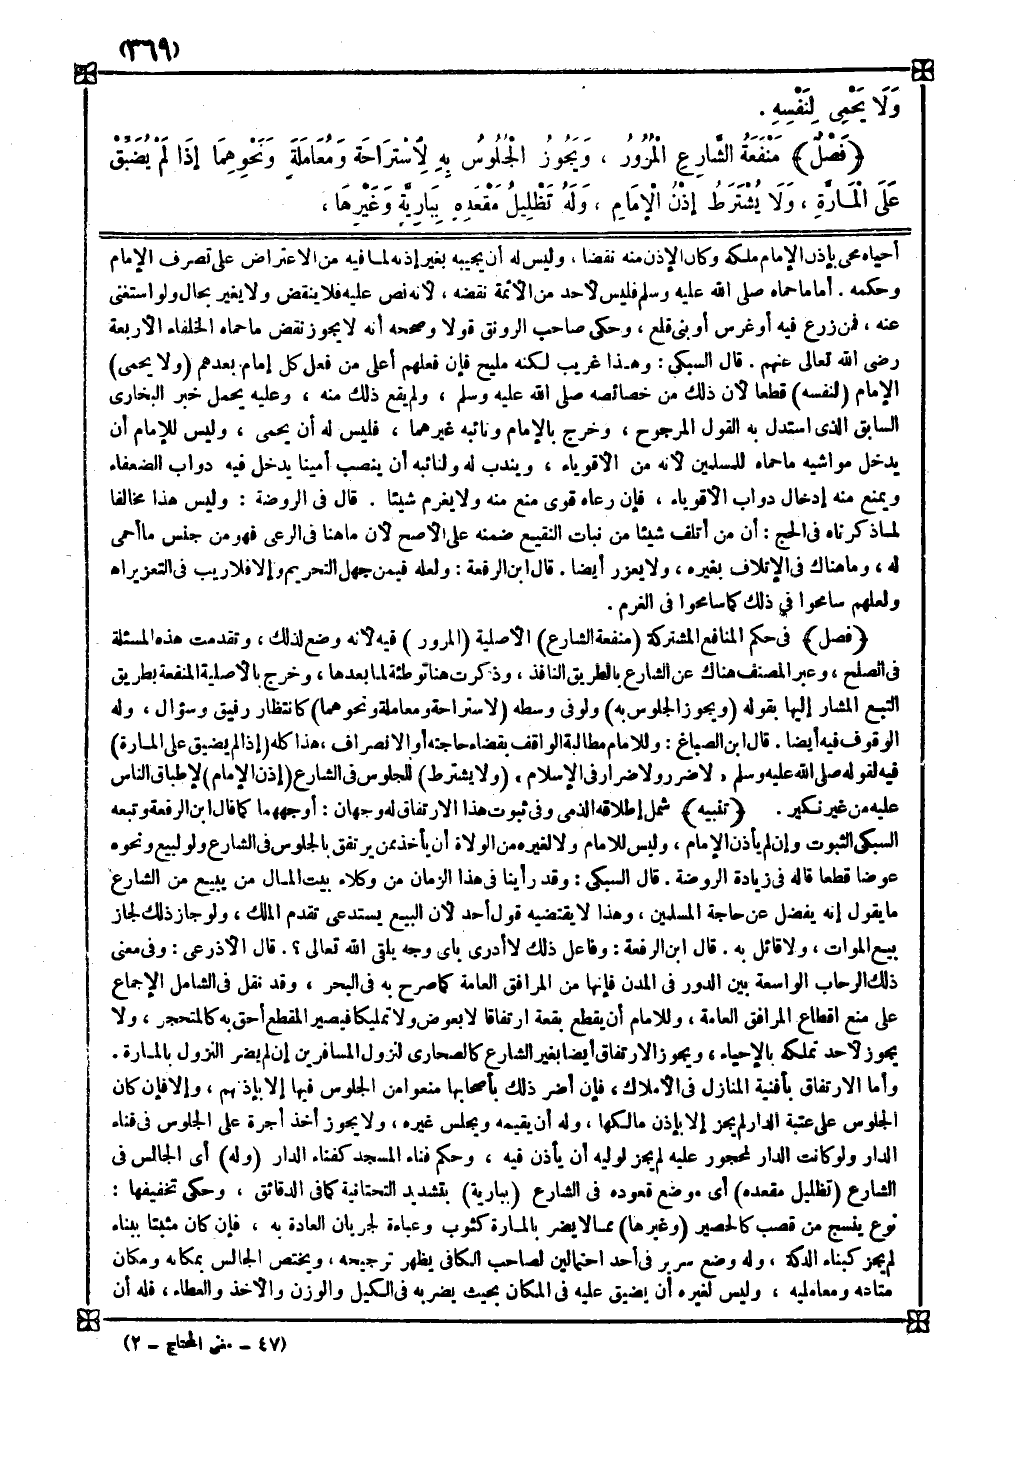 (٣٦٩)
وَلَا يَحْمِى لِنَفْسِهِ .
﴿فَصْلٌ﴾ مَنْفَعَةُ الشَّارِعِ الْمُرُورُ ، وَيَجُوزُ الْجُلُوسُ بِهِ لِاسْتِرَاحَةٍ وَمُعَامَلَةٍ وَنَحْوِهِمَا إِذَا لَمْ يُضَيِّقْ
عَلَى الْمَارَّةِ ، وَلَا يُشْتَرَطُ إِذْنُ الْإِمَامِ ، وَلَهُ تَظْلِيلُ مَقْعَدِهِ بِبَارِيَّةٍ وَغَيْرِهَا ،
أحياه محى بإذن الإمام ملكه وكان الإذن منه نقضا ، وليس له أن يحييه بغير إذنه لما فيه من الاعتراض على تصرف الإمام
وحكمه . أما ما حماه صلى الله عليه وسلم فليس لأحد من الأئمة نقضه ، لأنه نص عليه فلا ينقض ولا يغير بحال ولو استغنى
عنه ، فمن زرع فيه أو غرس أو بنى قلع ، وحكى صاحب الرونق قولا وصححه أنه لا يجوز نقض ما حماه الخلفاء الأربعة
رضى الله تعالى عنهم . قال السبكى : وهذا غريب لكنه مليح فإن فعلهم أعلى من فعل كل إمام بعدهم (ولا يحمى)
الإمام (لنفسه) قطعا لأن ذلك من خصائصه صلى الله عليه وسلم ، ولم يقع ذلك منه ، وعليه يحمل خبر البخارى
السابق الذى استدل به القول المرجوح ، وخرج بالإمام ونائبه غيرهما ، فليس له أن يحمى ، وليس للإمام أن
يدخل مواشيه ما حماه للمسلمين لأنه من الأقوياء ، ويندب له ولنائبه أن ينصب أمينا يدخل فيه دواب الضعفاء
ويمنع منه إدخال دواب الأقوياء ، فإن رعاه قوى منع منه ولا يغرم شيئا . قال فى الروضة : وليس هذا مخالفا
لما ذكرناه فى الحج : أن من أتلف شيئا من نبات النقيع ضمنه على الأصح لأن ما هنا فى الرعى فهو من جنس ما أحمى
له ، وما هناك فى الإتلاف بغيره ، ولا يعزر أيضا . قال ابن الرفعة : ولعله فيمن جهل التحريم وإلا فلا ريب فى التعزير اه
ولعلهم سامحوا في ذلك كما سامحوا فى الغرم .
﴿فصل﴾ فى حكم المنافع المشتركة (منفعة الشارع) الأصلية (المرور) فيه لأنه وضع لذلك ، وتقدمت هذه المسئلة
فى الصلح ، وعبر المصنف هناك عن الشارع بالطريق النافذ ، وذكرت هنا توطئة لما بعدها ، وخرج بالأصلية المنفعة بطريق
التبع المشار إليها بقوله (ويجوز الجلوس به) ولو فى وسطه (لاستراحة ومعاملة ونحوهما) كانتظار رفيق وسؤال ، وله
الوقوف فيه أيضا . قال ابن الصباغ : وللإمام مطالبة الواقف بقضاء حاجته أو الانصراف ، هذا كله (إذا لم يضيق على المارة)
فيه لقوله صلى الله عليه وسلم ، لا ضرر ولا ضرار فى الإسلام ، (ولا يشترط) للجلوس فى الشارع (إذن الإمام) لإطباق الناس
عليه من غير نكير . ﴿تنبيه﴾ شمل إطلاقه الذمى وفى ثبوت هذا الارتفاق له وجهان : أوجههما كما قال ابن الرفعة وتبعه
السبكى الثبوت وإن لم يأذن الإمام ، وليس للإمام ولا لغيره من الولاة أن يأخذ ممن يرتفق بالجلوس فى الشارع ولو لبيع ونحوه
عوضا قطعا قاله فى زيادة الروضة . قال السبكى : وقد رأينا فى هذا الزمان من وكلاء بيت المال من يبيع من الشارع
ما يقول إنه يفضل عن حاجة المسلمين ، وهذا لا يقتضيه قول أحد لأن البيع يستدعى تقدم الملك ، ولو جاز ذلك لجاز
بيع الموات ، ولا قائل به . قال ابن الرفعة : وفاعل ذلك لا أدرى باى وجه يلقى الله تعالى ؟ . قال الأذرعى : وفى معنى
ذلك الرحاب الواسعة بين الدور فى المدن فإنها من المرافق العامة كما صرح به فى البحر ، وقد نقل فى الشامل الإجماع
على منع اقطاع المرافق العامة ، وللإمام أن يقطع بقعة ارتفاقا لا بعوض ولا تمليكا فيصير المقطع أحق به كالمتحجر ، ولا
يجوز لأحد تملكه بالإحياء ، ويجوز الارتفاق أيضا بغير الشارع كالصحارى لنزول المسافرين إن لم يضر النزول بالمارة .
وأما الارتفاق بأفنية المنازل فى الأملاك ، فإن أضر ذلك بأصحابها منعوا من الجلوس فيها إلا بإذنهم ، وإلا فإن كان
الجلوس على عتبة الدار لم يجز إلا بإذن مالكها ، وله أن يقيمه ويجلس غيره ، ولا يجوز أخذ أجرة على الجلوس فى فناء
الدار ولو كانت الدار لمحجور عليه لم يجز لوليه أن يأذن فيه ، وحكم فناء المسجد كفناء الدار (وله) أى الجالس فى
الشارع (تظليل مقعده) أى موضع قعوده فى الشارع (ببارية) بتشديد التحتانية كما فى الدقائق ، وحكى تخفيفها :
نوع ينسج من قصب كالحصير (وغيرها) مما لا يضر بالمارة كثوب وعباءة لجريان العادة به ، فإن كان مثبتا ببناء
لم يجز كبناء الدكة ، وله وضع سرير فى أحد احتمالين لصاحب الكافى يظهر ترجيحه ، ويختص الجالس بمكانه ومكان
متاعه ومعامليه ، وليس لغيره أن يضيق عليه فى المكان بحيث يضر به فى الكيل والوزن والأخذ والعطاء ، فله أن
(٤٧ - مغنى المحتاج - ٢)